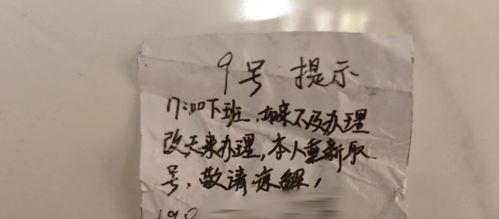 9号 提示
17:00下班,如来不及办理
改天来办理,本人重新取
号,敬请谅解,